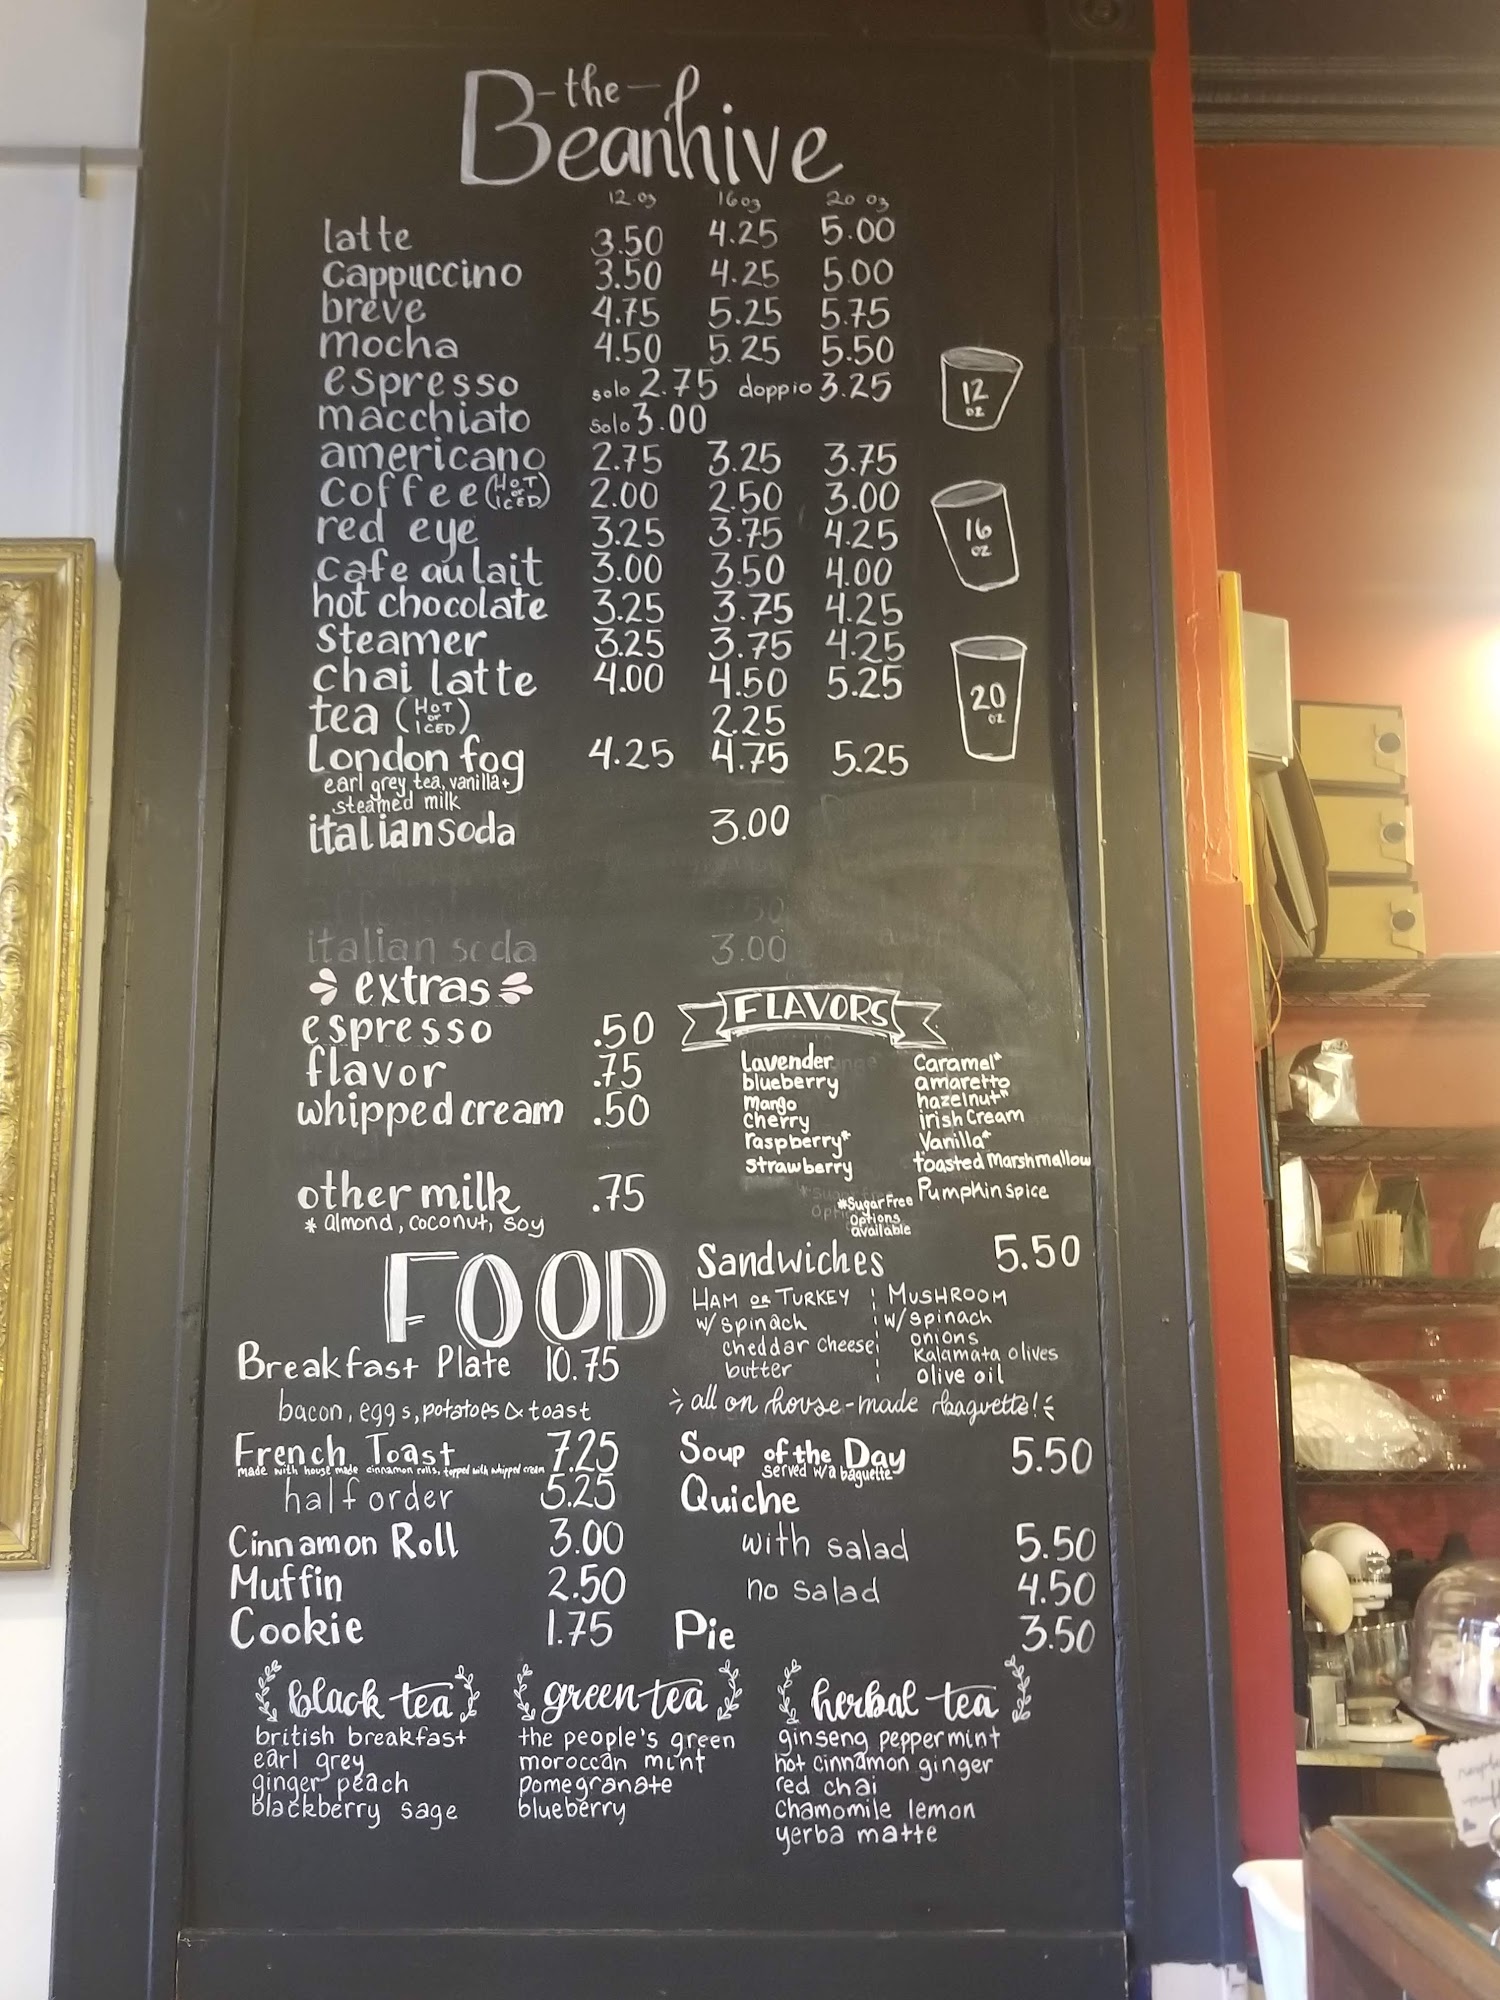 the
Beanhive
12 oz 16 oz 20 oz
latte 3.50 4.25 5.00
cappuccino 3.50 4.25 5.00
breve 4.75 5.25 5.75
mocha 4.50 5.25 5.50
espresso solo 2.75 doppio 3.25
macchiato solo 3.00
americano 2.75 3.25 3.75
coffee (HOT or ICED) 2.00 2.50 3.00
red eye 3.25 3.75 4.25
cafe au lait 3.00 3.50 4.00
hot chocolate 3.25 3.75 4.25
steamer 3.25 3.75 4.25
chai latte 4.00 4.50 5.25
tea (HOT or ICED) 2.25
London fog 4.25 4.75 5.25
earl grey tea, vanilla +
steamed milk
italian soda 3.00
12 oz
16 oz
20 oz
italian soda 3.00
extras
espresso .50
flavor .75
whipped cream .50
other milk .75
* almond, coconut, soy
FLAVORS
Lavender
blueberry
Mango
Cherry
raspberry*
Strawberry
Caramel*
amaretto
hazelnut*
irish Cream
Vanilla*
toasted Marshmallow
Pumpkin Spice
*Sugar Free
Options
available
FOOD
Breakfast Plate 10.75
bacon, eggs, potatoes & toast
French Toast 7.25
made with house made cinnamon rolls, topped with whipped cream
half order 5.25
Cinnamon Roll 3.00
Muffin 2.50
Cookie 1.75
Sandwiches 5.50
HAM OR TURKEY
w/ spinach
cheddar cheese
butter
MUSHROOM
w/ spinach
onions
Kalamata olives
olive oil
all on house-made baguette!
Soup of the Day 5.50
served w/a baguette
Quiche
with salad 5.50
no salad 4.50
Pie 3.50
black tea
british breakfast
earl grey
ginger peach
blackberry sage
green tea
the people's green
moroccan mint
pomegranate
blueberry
herbal tea
ginseng peppermint
hot cinnamon ginger
red chai
chamomile lemon
yerba matte